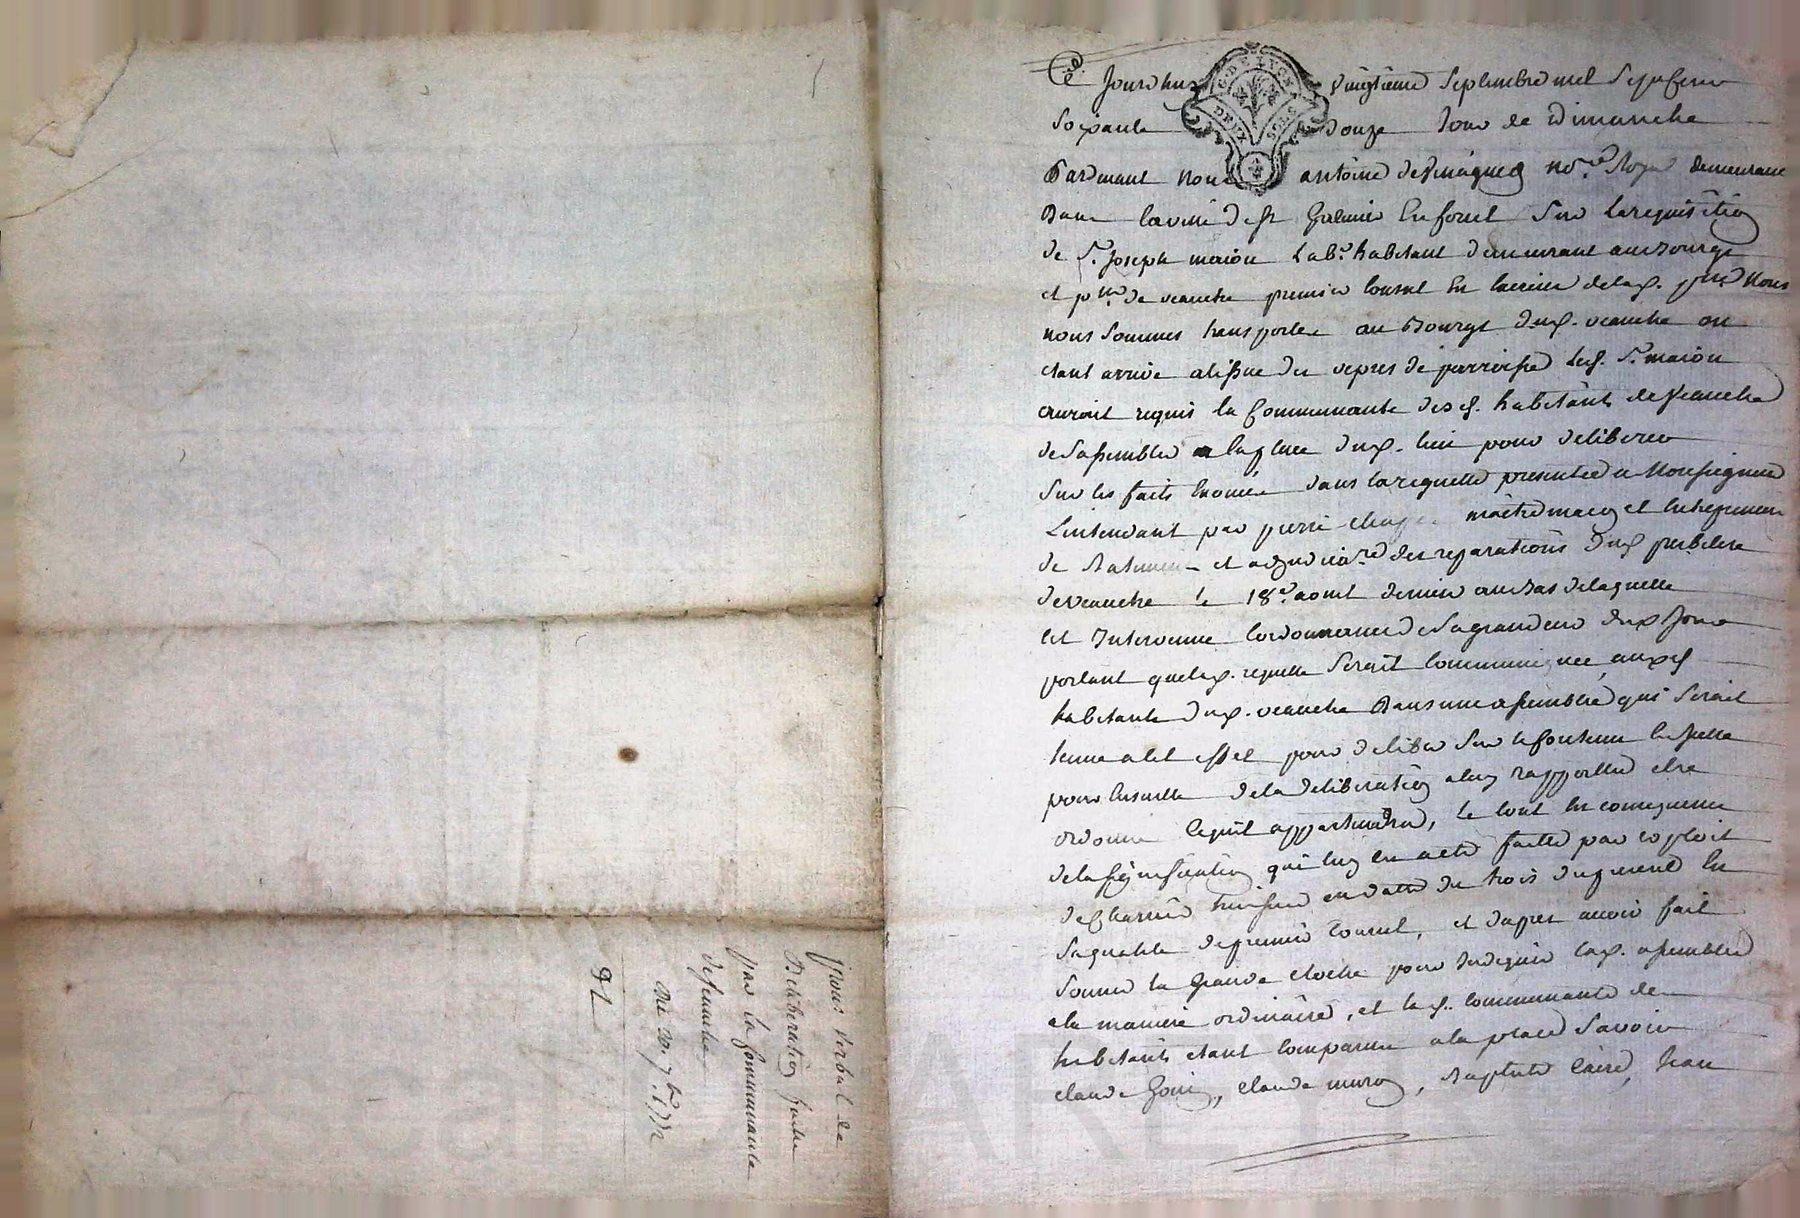 Ce Jourdhuy vingtieme Septembre mil Sept cens
Soixante douze Jour de Dimanche
Pardevant nous antoine devinagues no.re Royal demeurant
Dans la ville de st Galmier En forest Sur la requisition
de Sr. Joseph maion Lab.r habitant demeurant au Bourg
et p.sse de veauche premier Consul En Exercice de lad. p.sse Nous
nous Sommes transportes au Bourgt dud. veauche ou
etant arrivé a lissue des vepres de parroisse Led. Sr. maion
auroit requis la Communauté desd. habitants de veauche
de Sassembler a la place dud. lieu pour deliberer
Sur les faits Enoncés dans la requette presentée a Monseigneur
Lintendant par pierre maitre macon et Entrepreneur
de Batiments et adjudica.re des reparations dud. presbitere
de veauche le 18.e aoust dernier au bas de laquelle
Est Intervenue Lordonnance de Sa grandeur dud. Jour
portant que lad. requette Seroit Communiquée auxd.
habitants dud. veauche Dans une assemblée qui Seroit
tenue a cet effet pour deliberer Sur le Contenu En Icelle
pour Ensuitte de la deliberation a luy rapportée etre
ordonné Ce quil appartiendra, Le tout En consequence
de la signification qui luy En a eté faitte par exploit
de huissier en datte du trois du present En
Sa qualité de premier Consul, et dapres avoir fait
Sonner la Grande cloche pour Indiquer lad. assemblée
a la maniere ordinaire, et lad. communauté de
habitants etant Comparue a la place Savoir
claude claude muron, Baptiste Jean
proces verbal de
Deliberation faitte
par la Communauté
de veauche
du 20. 7bre 1772
LOCALIDAREYRS
C. DE LYON
DEUX SOLS